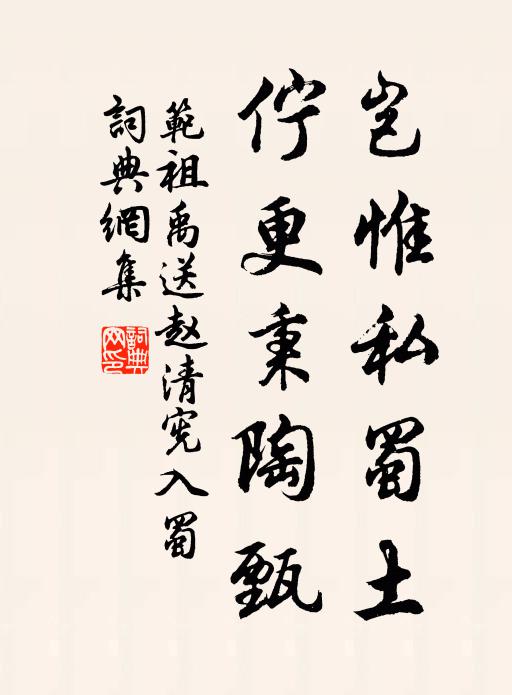 岂惟私蜀土
佇更秉陶甄
範祖禹送赵清宪入蜀
詞典網集
詞典网印